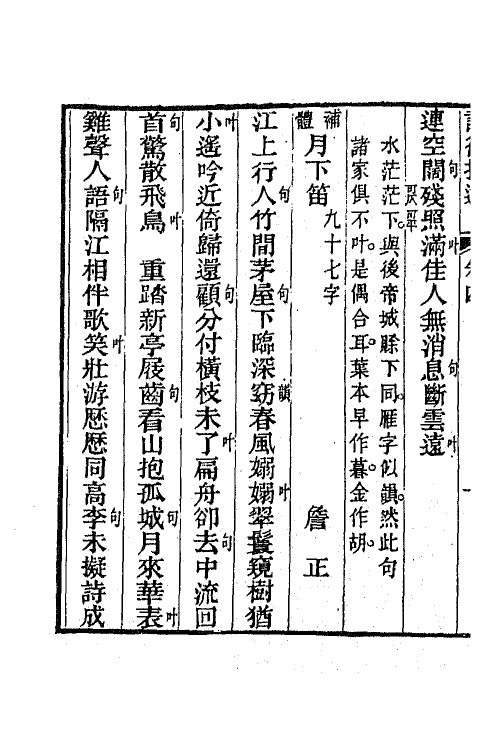 連空闊殘照滿佳人無消息斷雲遠
水茫茫下與後帝城賖下同雁字似韻然此句
諸家俱不叶是偶合耳葉本早作暮金作胡
補體 月下笛 九十七字 詹正
江上行人竹間茅屋下臨深窈春風嫋嫋翠鬟窺樹猶
小遙吟近倚歸還顧分付橫枝未了扁舟卻去中流回
首驚散飛鳥 重踏新亭屐齒看山抱孤城月來華表
雞聲人語隔江相伴歌笑壯游歷歷同高李未擬詩成